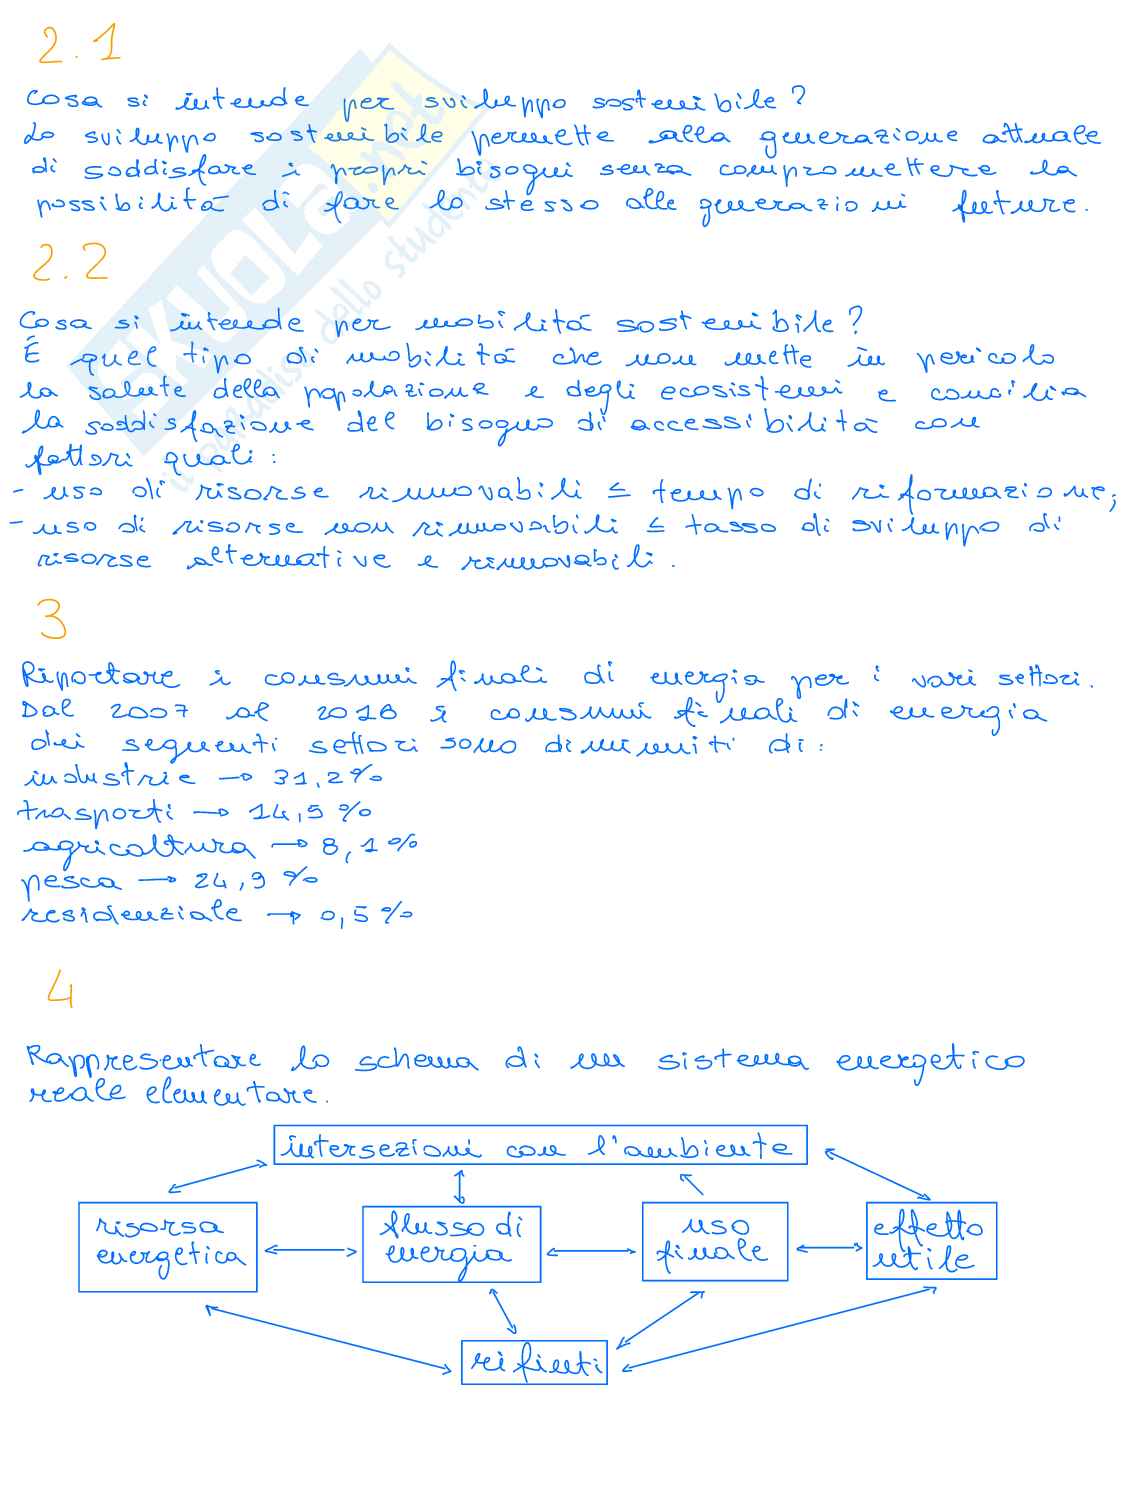 2.1
Cosa si intende per sviluppo sostenibile?
Lo sviluppo sostenibile permette alla generazione attuale
di soddisfare i propri bisogni senza compromettere la
possibilità di fare lo stesso alle generazioni future.
2.2
Cosa si intende per mobilità sostenibile?
È quel tipo di mobilità che non mette in pericolo
la salute della popolazione e degli ecosistemi e concilia
la soddisfazione del bisogno di accessibilità con
fattori quali:
- uso di risorse rinnovabili ≤ tempo di riformazione;
- uso di risorse non rinnovabili ≤ tasso di sviluppo di
risorse alternative e rinnovabili.
3
Riportare i consumi finali di energia per i vari settori.
Dal 2007 al 2018 i consumi finali di energia
dei seguenti settori sono diminuiti di:
industrie → 31,2%
trasporti → 14,5%
agricoltura → 8,1%
pesca → 24,9%
residenziale → 0,5%
4
Rappresentare lo schema di un sistema energetico
reale elementare.
intersezioni con l'ambiente
risorsa
energetica
flusso di
energia
uso
finale
effetto
utile
rifiuti
SKUOLA.net
il paradiso dello studente